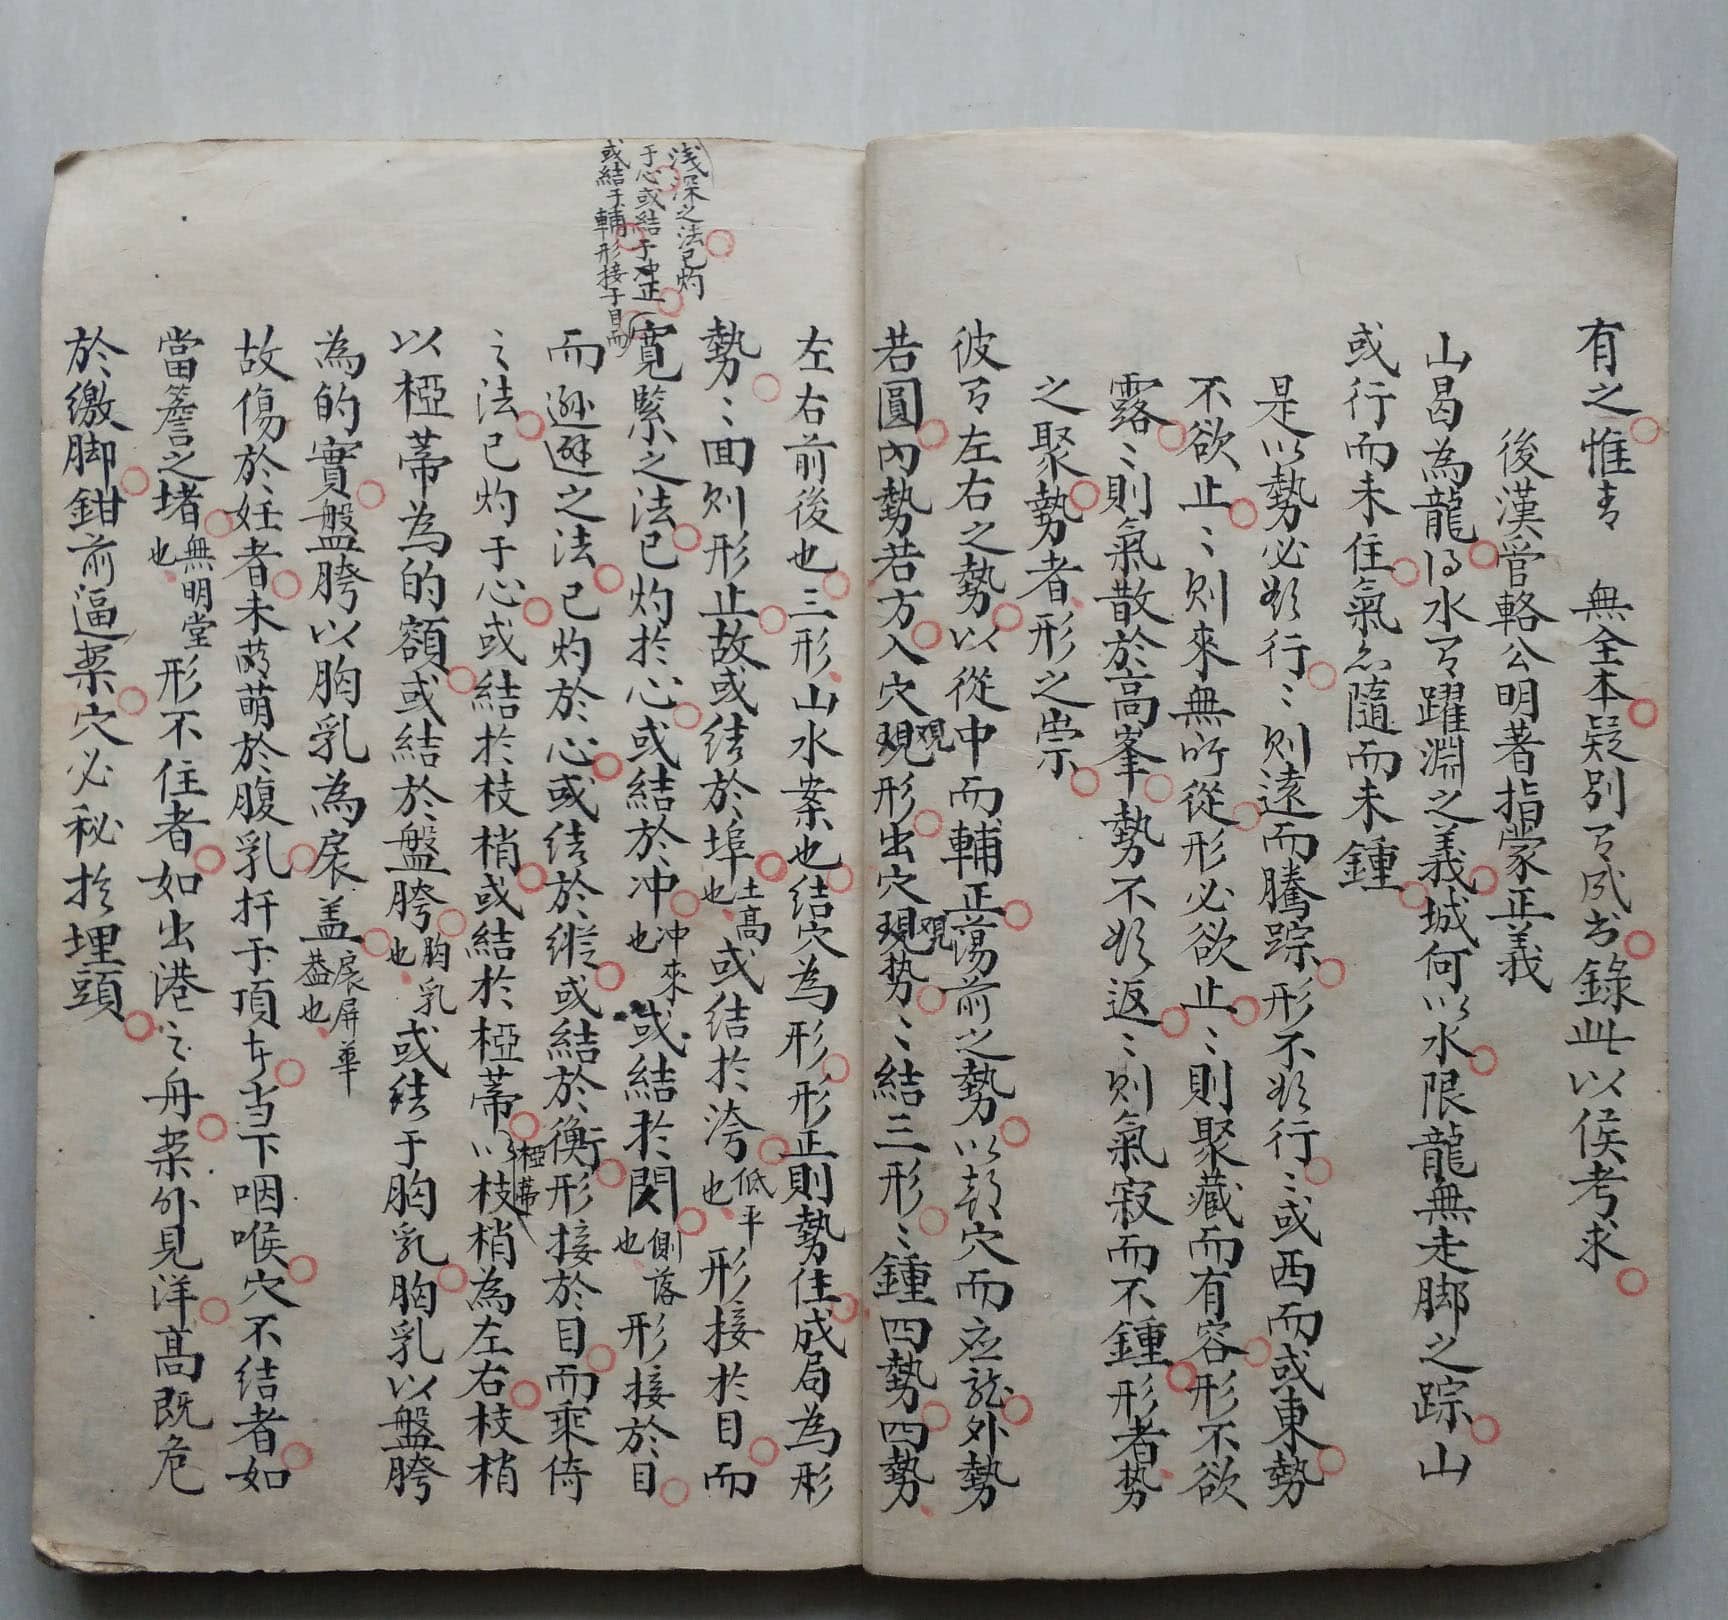 有之惟青 無全本疑別有成書錄此以侯考求
後漢管輅公明著指蒙正義
山曷為龍得水有躍淵之義城何以水限龍無走脚之踪山
或行而未住氣亦隨而未鍾
是以勢必欲行〻則遠而騰踪形不欲行〻或西而或東勢
不欲止〻則來無所從形必欲止〻則聚藏而有容形不欲
露〻則氣散於高峯勢不欲返〻則氣寂而不鍾形者势
之聚勢者形之崇
彼有左右之勢以從中而輔正蕩前之勢以朝穴而应龍外勢
若圓內勢若方入穴觀現形出穴觀現势〻結三形〻鍾四勢四勢
左右前後也三形山水案也結穴為形形正則勢住成局為形
勢〻面则形止故或结於埠土高也或结於洿低平也形接於目而
寬緊之法已灼於心或結於冲冲來也或結於閃側落也形接於目
而遜避之法已灼於心或结於縱或結於衡形接於目而乘倚
〻法已灼于心或結於枝梢或結於椏蒂以枝梢為左右枝梢
椏蒂
以椏蒂為的額或結於盤胯胸乳也或结于胸乳胸乳以盤胯
為的實盤胯以胸乳為扆盖扆屏華葢也
故傷於妊者未萌於腹乳扦于頂者当下咽喉穴不结者如
當簷之堵無明堂也形不住者如出港之舟案外見洋高既危
於繳脚鉗前逼案穴必秘於埋頭
浅深之法已灼
于心或結于冲正
或結于輔形接于目而